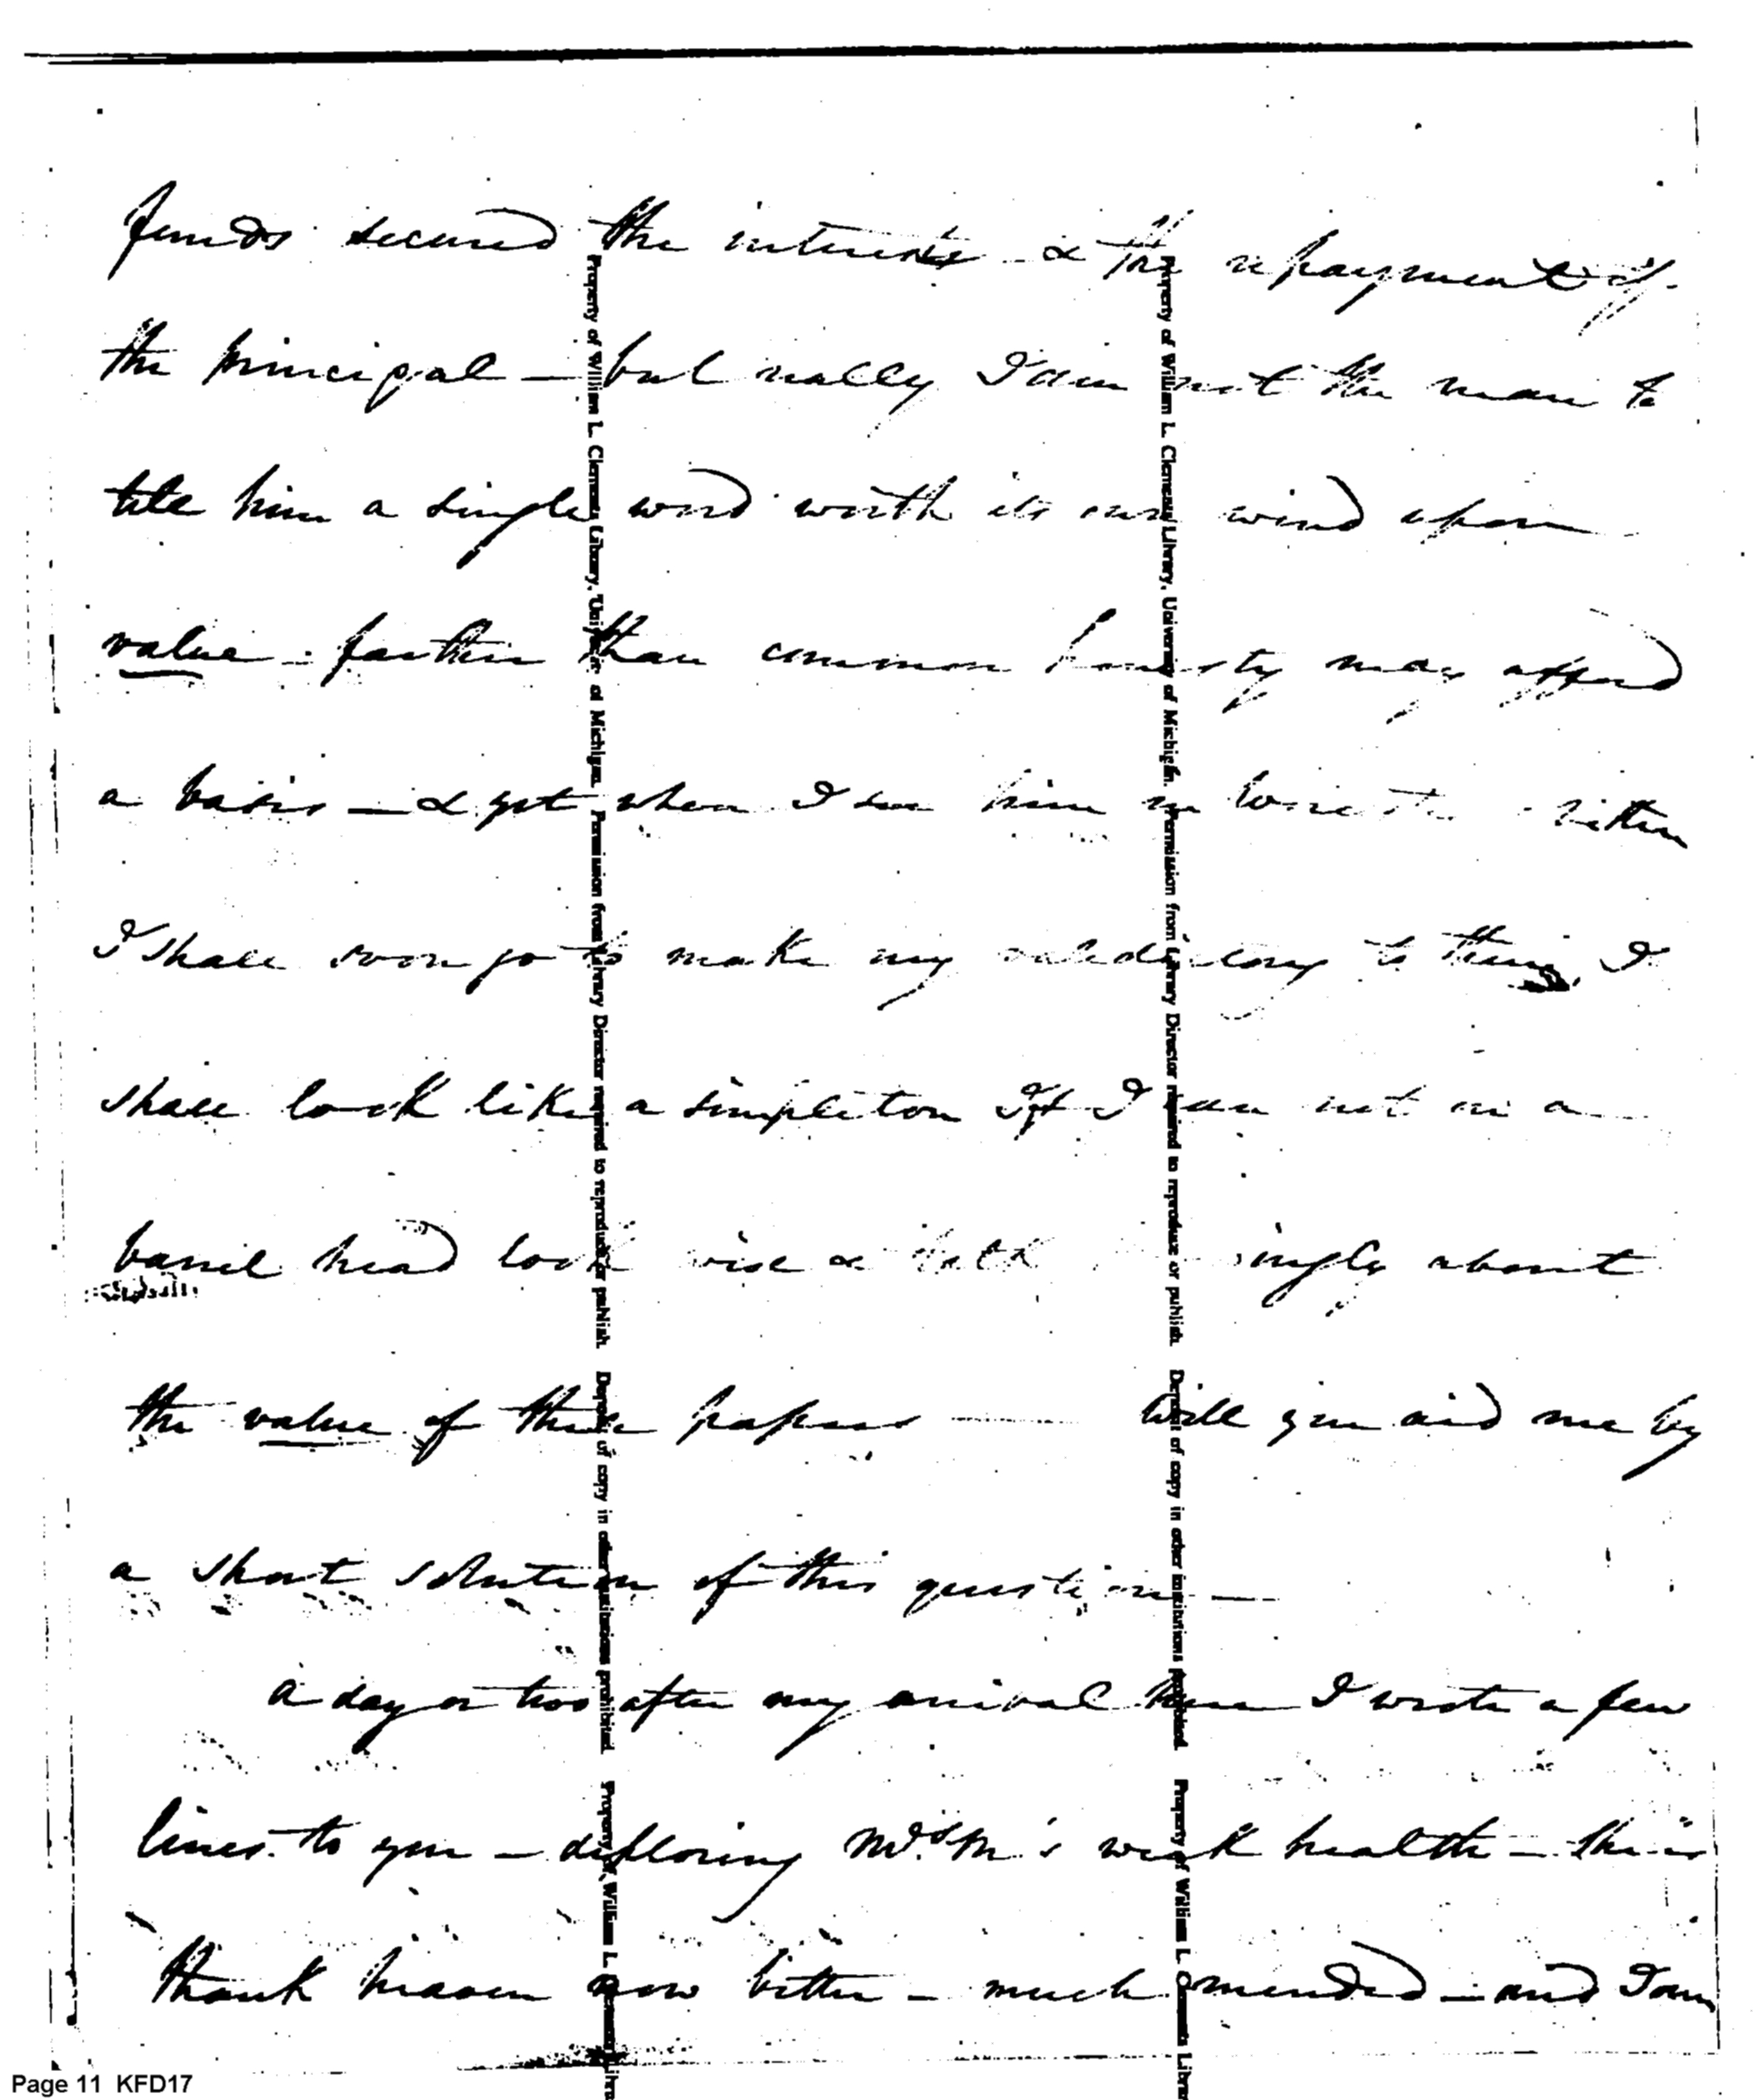 funds secured the interests & the repayment of
the principal — but really I am not the man to
tele him a single word worth its own wind upon
value - farther than common honesty may afford
a basis — & yet when I see him in whither
I shall soon go to make my to them, I
shall look like a simpleton If I can not in a
barril head look wise & talk about
the value of these papers — will you aid me by
a short solution of this question —
a day or two after my arrival here I wrote a few
lines to you — deploring Mrs. M's weak health — She is
thank heaven now better — much mended — and I am
Property of William L. Clements Library, University of Michigan. Permission from Library Director required to reproduce or publish. Deposit of copy in other institutions prohibited. Property of William L. Clements Libra
Property of William L. Clements Library, University of Michigan. Permission from Library Director required to reproduce or publish. Deposit of copy in other institutions prohibited. Property of William L. Clements Librar
Page 11 KFD17